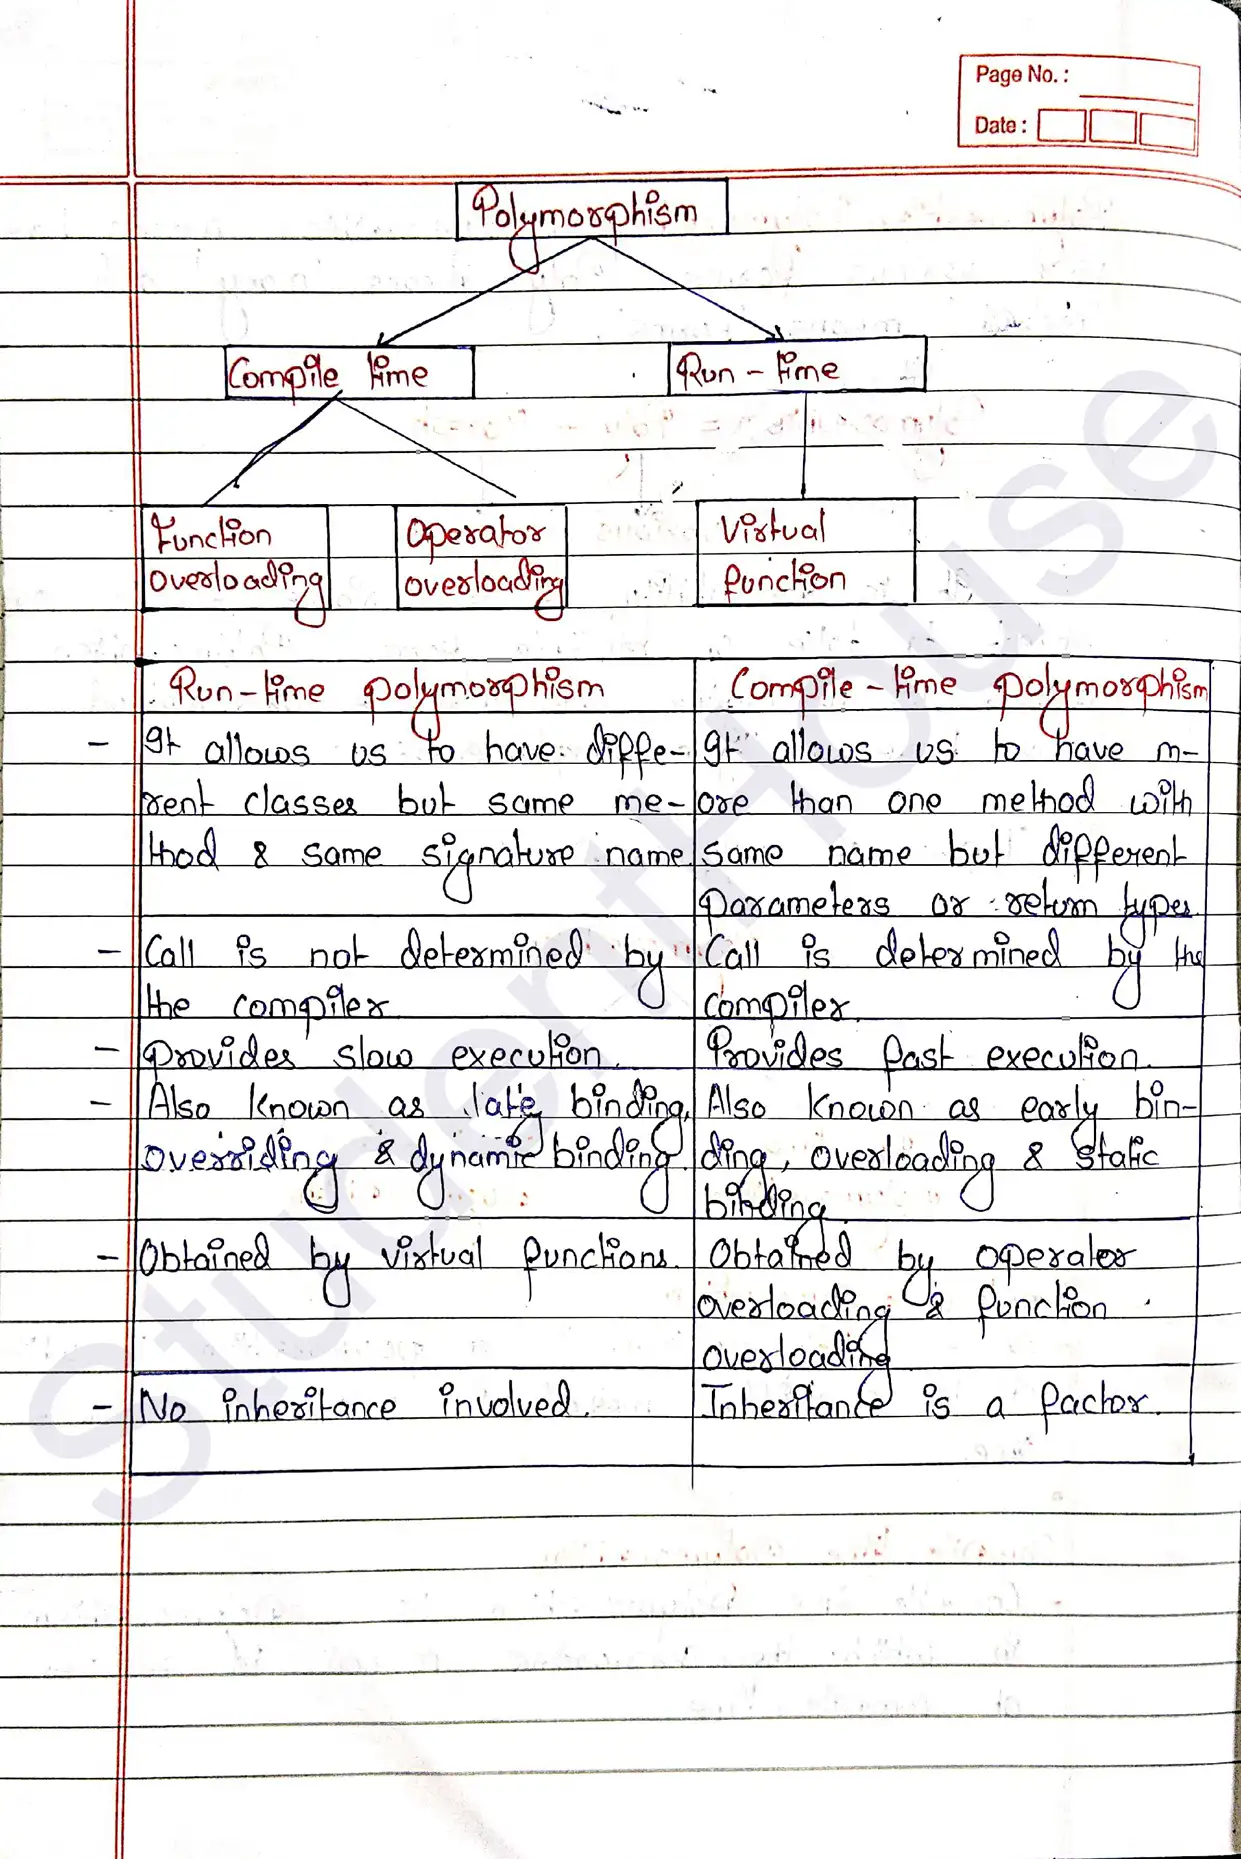 Page No. :
Date :
Polymorphism
Compile time
Run - time
Function
overloading
Operator
overloading
Virtual
function
Run-time polymorphism
Compile - time polymorphism
It allows us to have diffe-
rent classes but same me-
thod & same signature name.
It allows us to have m-
ore than one method with
same name but different
parameters or return types.
- Call is not determined by
the compiler
Call is determined by the
compiler.
- Provides slow execution.
Provides fast execution.
- Also known as late binding,
overriding & dynamic binding.
Also known as early bin-
ding, overloading & static
binding.
- Obtained by virtual functions.
Obtained by operator
overloading & function
overloading
- No inheritance involved.
Inheritance is a factor.
StudentHouse